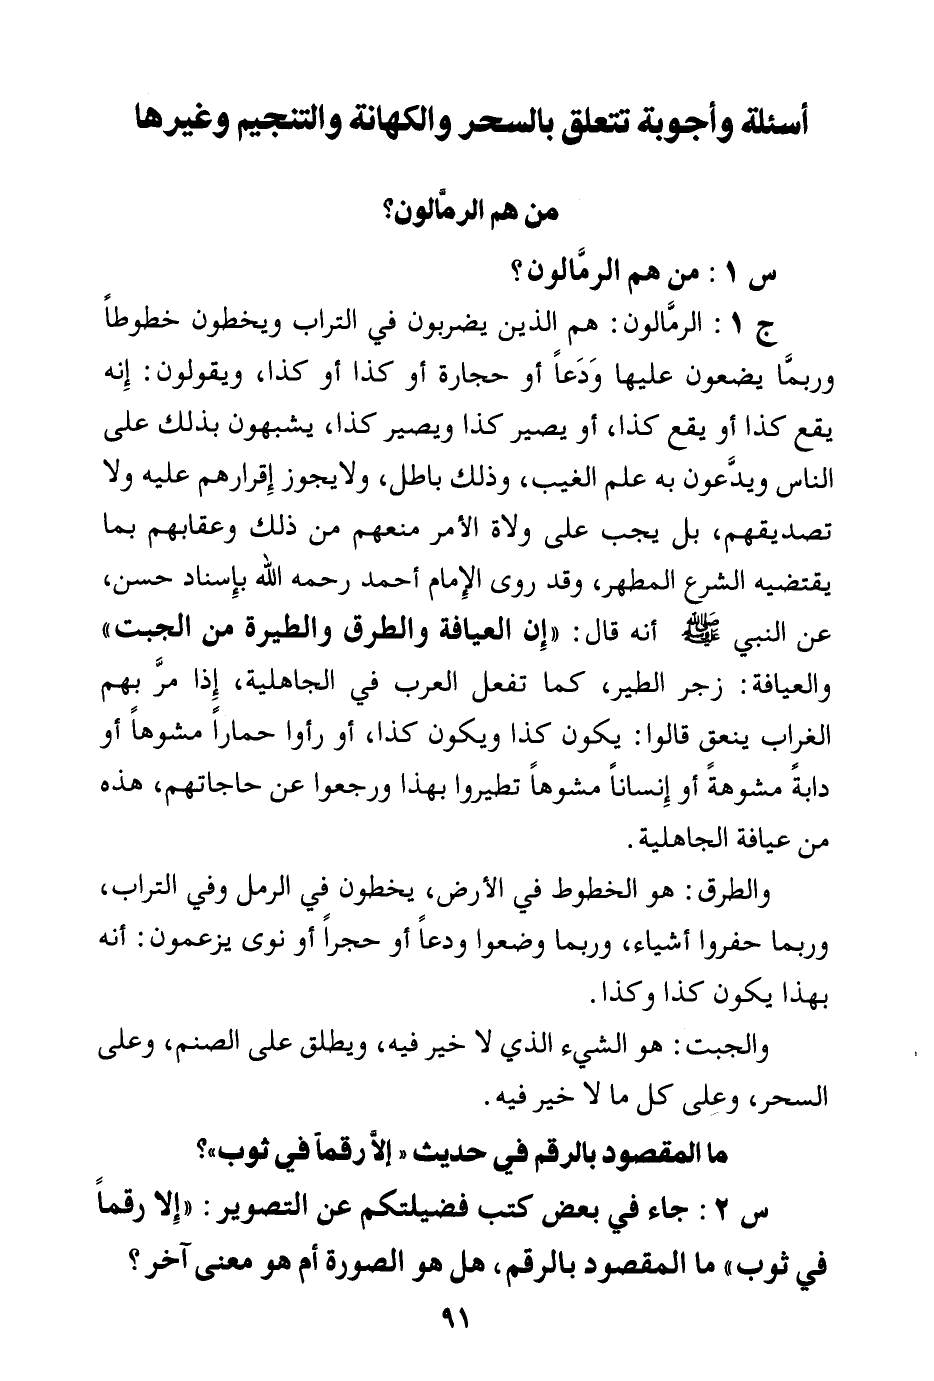 أسئلة وأجوبة تتعلق بالسحر والكهانة والتنجيم وغيرها
من هم الرمَّالون؟
س ١ : من هم الرمَّالون؟
ج ١ : الرمَّالون: هم الذين يضربون في التراب ويخطون خطوطاً
وربمَّا يضعون عليها وَدَعاً أو حجارة أو كذا أو كذا، ويقولون: إنه
يقع كذا أو يقع كذا، أو يصير كذا ويصير كذا، يشبهون بذلك على
الناس ويدَّعون به علم الغيب، وذلك باطل، ولايجوز إقرارهم عليه ولا
تصديقهم، بل يجب على ولاة الأمر منعهم من ذلك وعقابهم بما
يقتضيه الشرع المطهر، وقد روى الإمام أحمد رحمه الله بإسناد حسن،
عن النبي ﷺ أنه قال: «إن العيافة والطرق والطيرة من الجبت»
والعيافة: زجر الطير، كما تفعل العرب في الجاهلية، إذا مرَّ بهم
الغراب ينعق قالوا: يكون كذا ويكون كذا، أو رأوا حماراً مشوهاً أو
دابةً مشوهةً أو إنساناً مشوهاً تطيروا بهذا ورجعوا عن حاجاتهم، هذه
من عيافة الجاهلية.
والطرق: هو الخطوط في الأرض، يخطون في الرمل وفي التراب،
وربما حفروا أشياء، وربما وضعوا ودعاً أو حجراً أو نوى يزعمون: أنه
بهذا يكون كذا وكذا.
والجبت: هو الشيء الذي لا خير فيه، ويطلق على الصنم، وعلى
السحر، وعلى كل ما لا خير فيه.
ما المقصود بالرقم في حديث «إلاَّ رقماً في ثوب»؟
س ٢ : جاء في بعض كتب فضيلتكم عن التصوير: «إلا رقماً
في ثوب» ما المقصود بالرقم، هل هو الصورة أم هو معنى آخر؟
٩١